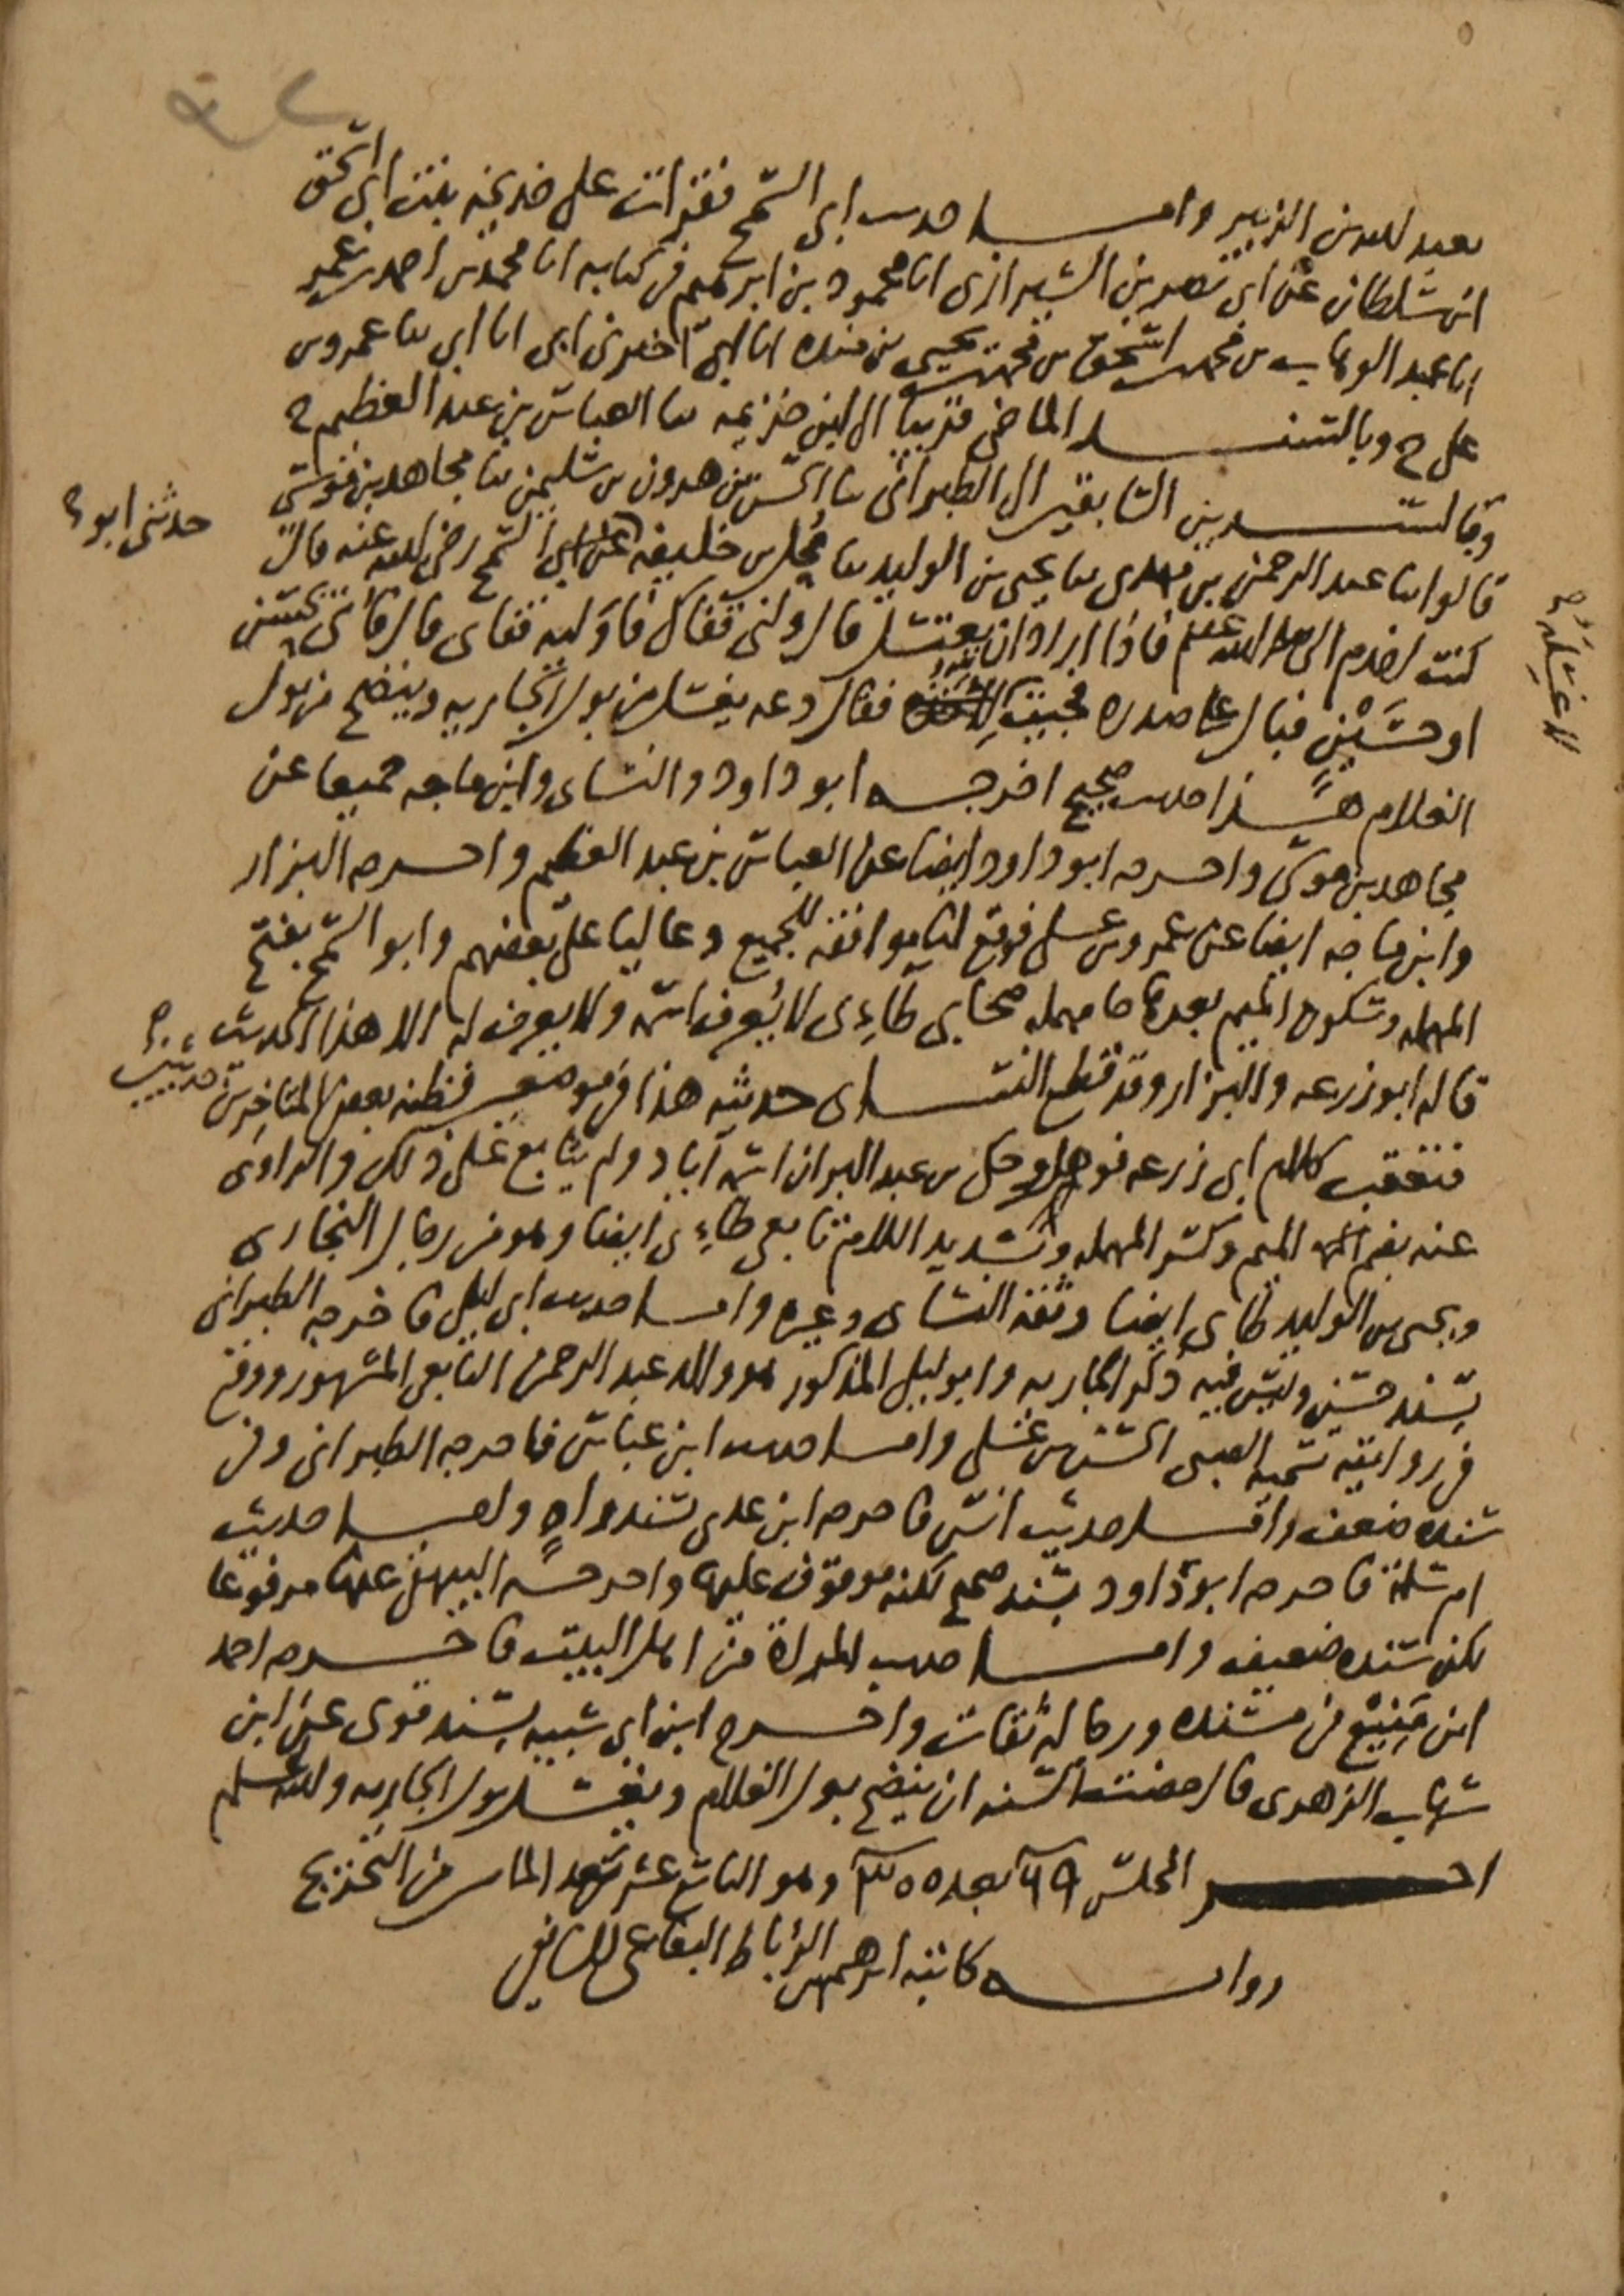 بعبد الله بن الزبير واما حديث ابي السمح فقرات على خديجة بنت ابي اسحق
ابن سلطان عن ابي نصر بن الشيرازي انا محمود بن ابرهيم في كتابه انا محمد بن احمد بن عمر
انا عبد الوهاب بن محمد بن اسحق بن محمد بن يحيى بن منده انا ابي اخبرني ابي انا ابي ثنا عمرو بن
علي ح وبالسند الماضي قريبا الى ابن خزيمة ثنا العباس بن عبد العظيم ح
وبالسندين السابقين الى الطبراني ثنا موسى بن هرون بن سليمن ثنا مجاهد بن موسى
قالوا ثنا عبد الرحمن بن مهدي ثنا يحيى بن الوليد ثنا محل بن خليفة حدثني ابو السمح رضي الله عنه قال
كنت اخدم النبي صلى الله عليه وسلم فاذا اراد ان يغتسل قال ولني قفاك فاوليه قفاي قال فاتي بحسن
او حسين فبال على صدره فجيت لاغسله فقال دعه يغسل من بول الجارية وينضح من بول
الغلام هذا حديث صحيح اخرجه ابو داود والنساي وابن ماجه جميعا عن
مجاهد بن موسى واخرجه ابو داود ايضا عن العباس بن عبد العظيم واخرجه البزار
وابن ماجه ايضا عن عمرو بن علي فوقع لنا موافقة للجميع وعاليا على بعضهم وابو السمح بفتح
المهملة وسكون الميم بعدها حا مهملة صحابي طاءي لا يعرف اسمه ولا يعرف له الا هذا الحديث
قاله ابو زرعة والبزار وقد قطع النساي حديثه هذا في موضعين فظنه بعض المتاخرين حديثين
فتعقب كلام ابي زرعة فوهم وحكى بن عبد البر ان اسمه اياد ولم يتابع على ذلك والراوي
عنه بضم الميم وكسر المهملة وتشديد اللام تابعي طاءي ايضا وهو من رجال البخاري
ويحيى بن الوليد طاي ايضا وثقه النساي وغيره واما حديث ابي ليلى فاخرجه الطبراني
بسند حسن وليس فيه ذكر الجارية وابو ليلى المذكور هو والد عبد الرحمن التابعي المشهور ووقع
في روايته تسمية الصبي الحسن بن علي واما حديث ابن عباس فاخرجه الطبراني وفي
سنده ضعف واما حديث انس فاخرجه ابن عدي بسند واه واما حديث
ام سلمة فاخرجه ابو داود بسند صحيح لكنه موقوف عليها واخرجه البيهقي عنها مرفوعا
لكن سنده ضعيف واما حديث المراة من اهل البيت فاخرجه احمد
ابن منيع في مسنده ورجاله ثقات واخرج ابن ابي شيبة بسند قوي عن ابن
شهاب الزهري قال مضت السنة ان ينضح بول الغلام ويغسل بول الجارية والله اعلم
اخر المجلس ٦٩ بعد ٣٥٥ وهو التاسع عشر بعد الماس من التخريج
رواية كاتبه ابرهيم الرباط البقاعي الشافعي
حدثني ابو ح
لاغسله ح